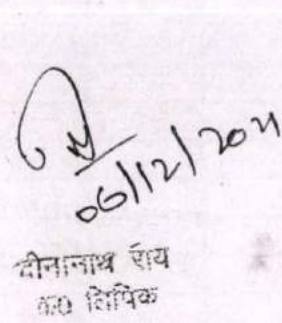 06/12/2021
दीनानाथ राय
क0 लिपिक